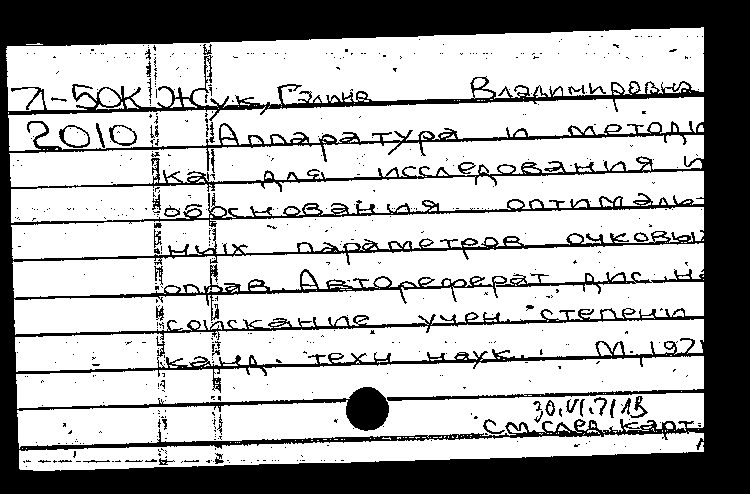 71-50К Жук, Галина Владимировна
2010 Аппаратура и методи
ка для исследования и
обоснования оптималь-
ных параметров очковых
оправ. Автореферат дис. на
соискание учен. степени
канд. техн наук. М., 1971
30.VI.71
см. след. карт.